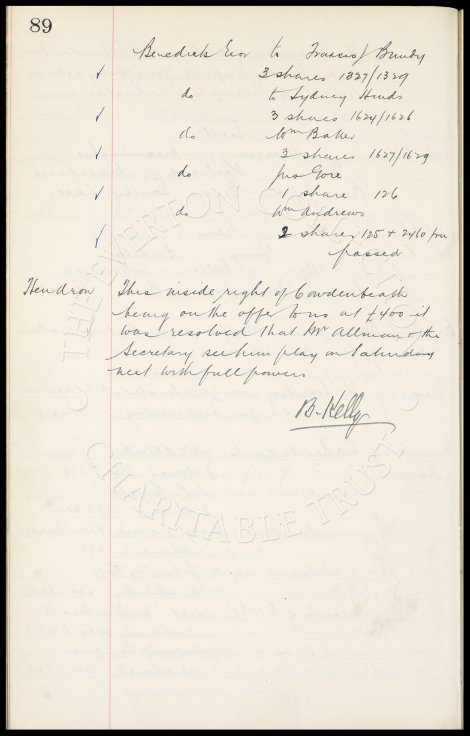 89
Benedicts Exor to Francis J Bundy
✓ 3 shares 1327/1329
do to Sydney Hinds
✓ 3 shares 1624/1626
do Wm Baker
✓ 3 shares 1627/1629
do Jno Gore
✓ 1 share 126
do Wm Andrews
✓ 2 shares 125 + 2460 
passed
Hendron This inside right of Cowdenbeath
being on the offer to us at £400 it
was resolved that Mr Allman & the
Secretary see him play on Saturday
next with full powers
B. Kelly
THE EVERTON COLLECTION
CHARITABLE TRUST